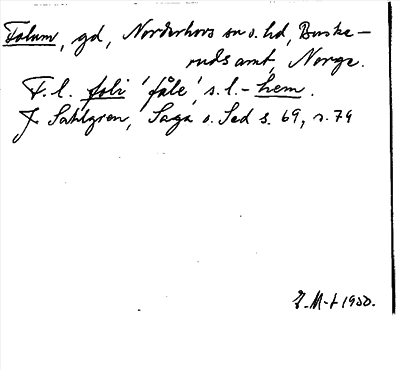 Folum, gd, Norderhovs sn o. hd, Buske-
ruds amt, Norge.
F. l. foli 'fåle', s. l. - hem.
J. Sahlgren, Saga o. Sed s. 69, n. 79
Z. M-t 1950.